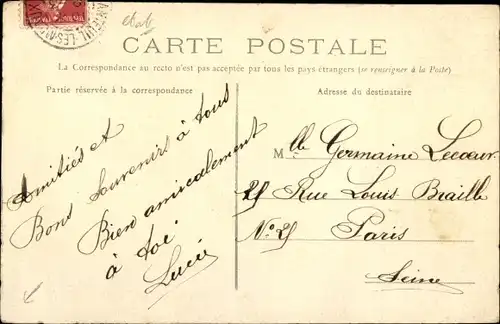 CARTE POSTALE
La Correspondance au recto n'est pas acceptée par tous les pays étrangers (se renseigner à la Poste)
Partie réservée à la correspondance
Adresse du destinataire
Amitiés et
Bons souvenirs à tous
Bien amicalement
à toi
Lucie
Mlle Germaine Lecoeur
25 Rue Louis Braille
No 25
Paris
Seine